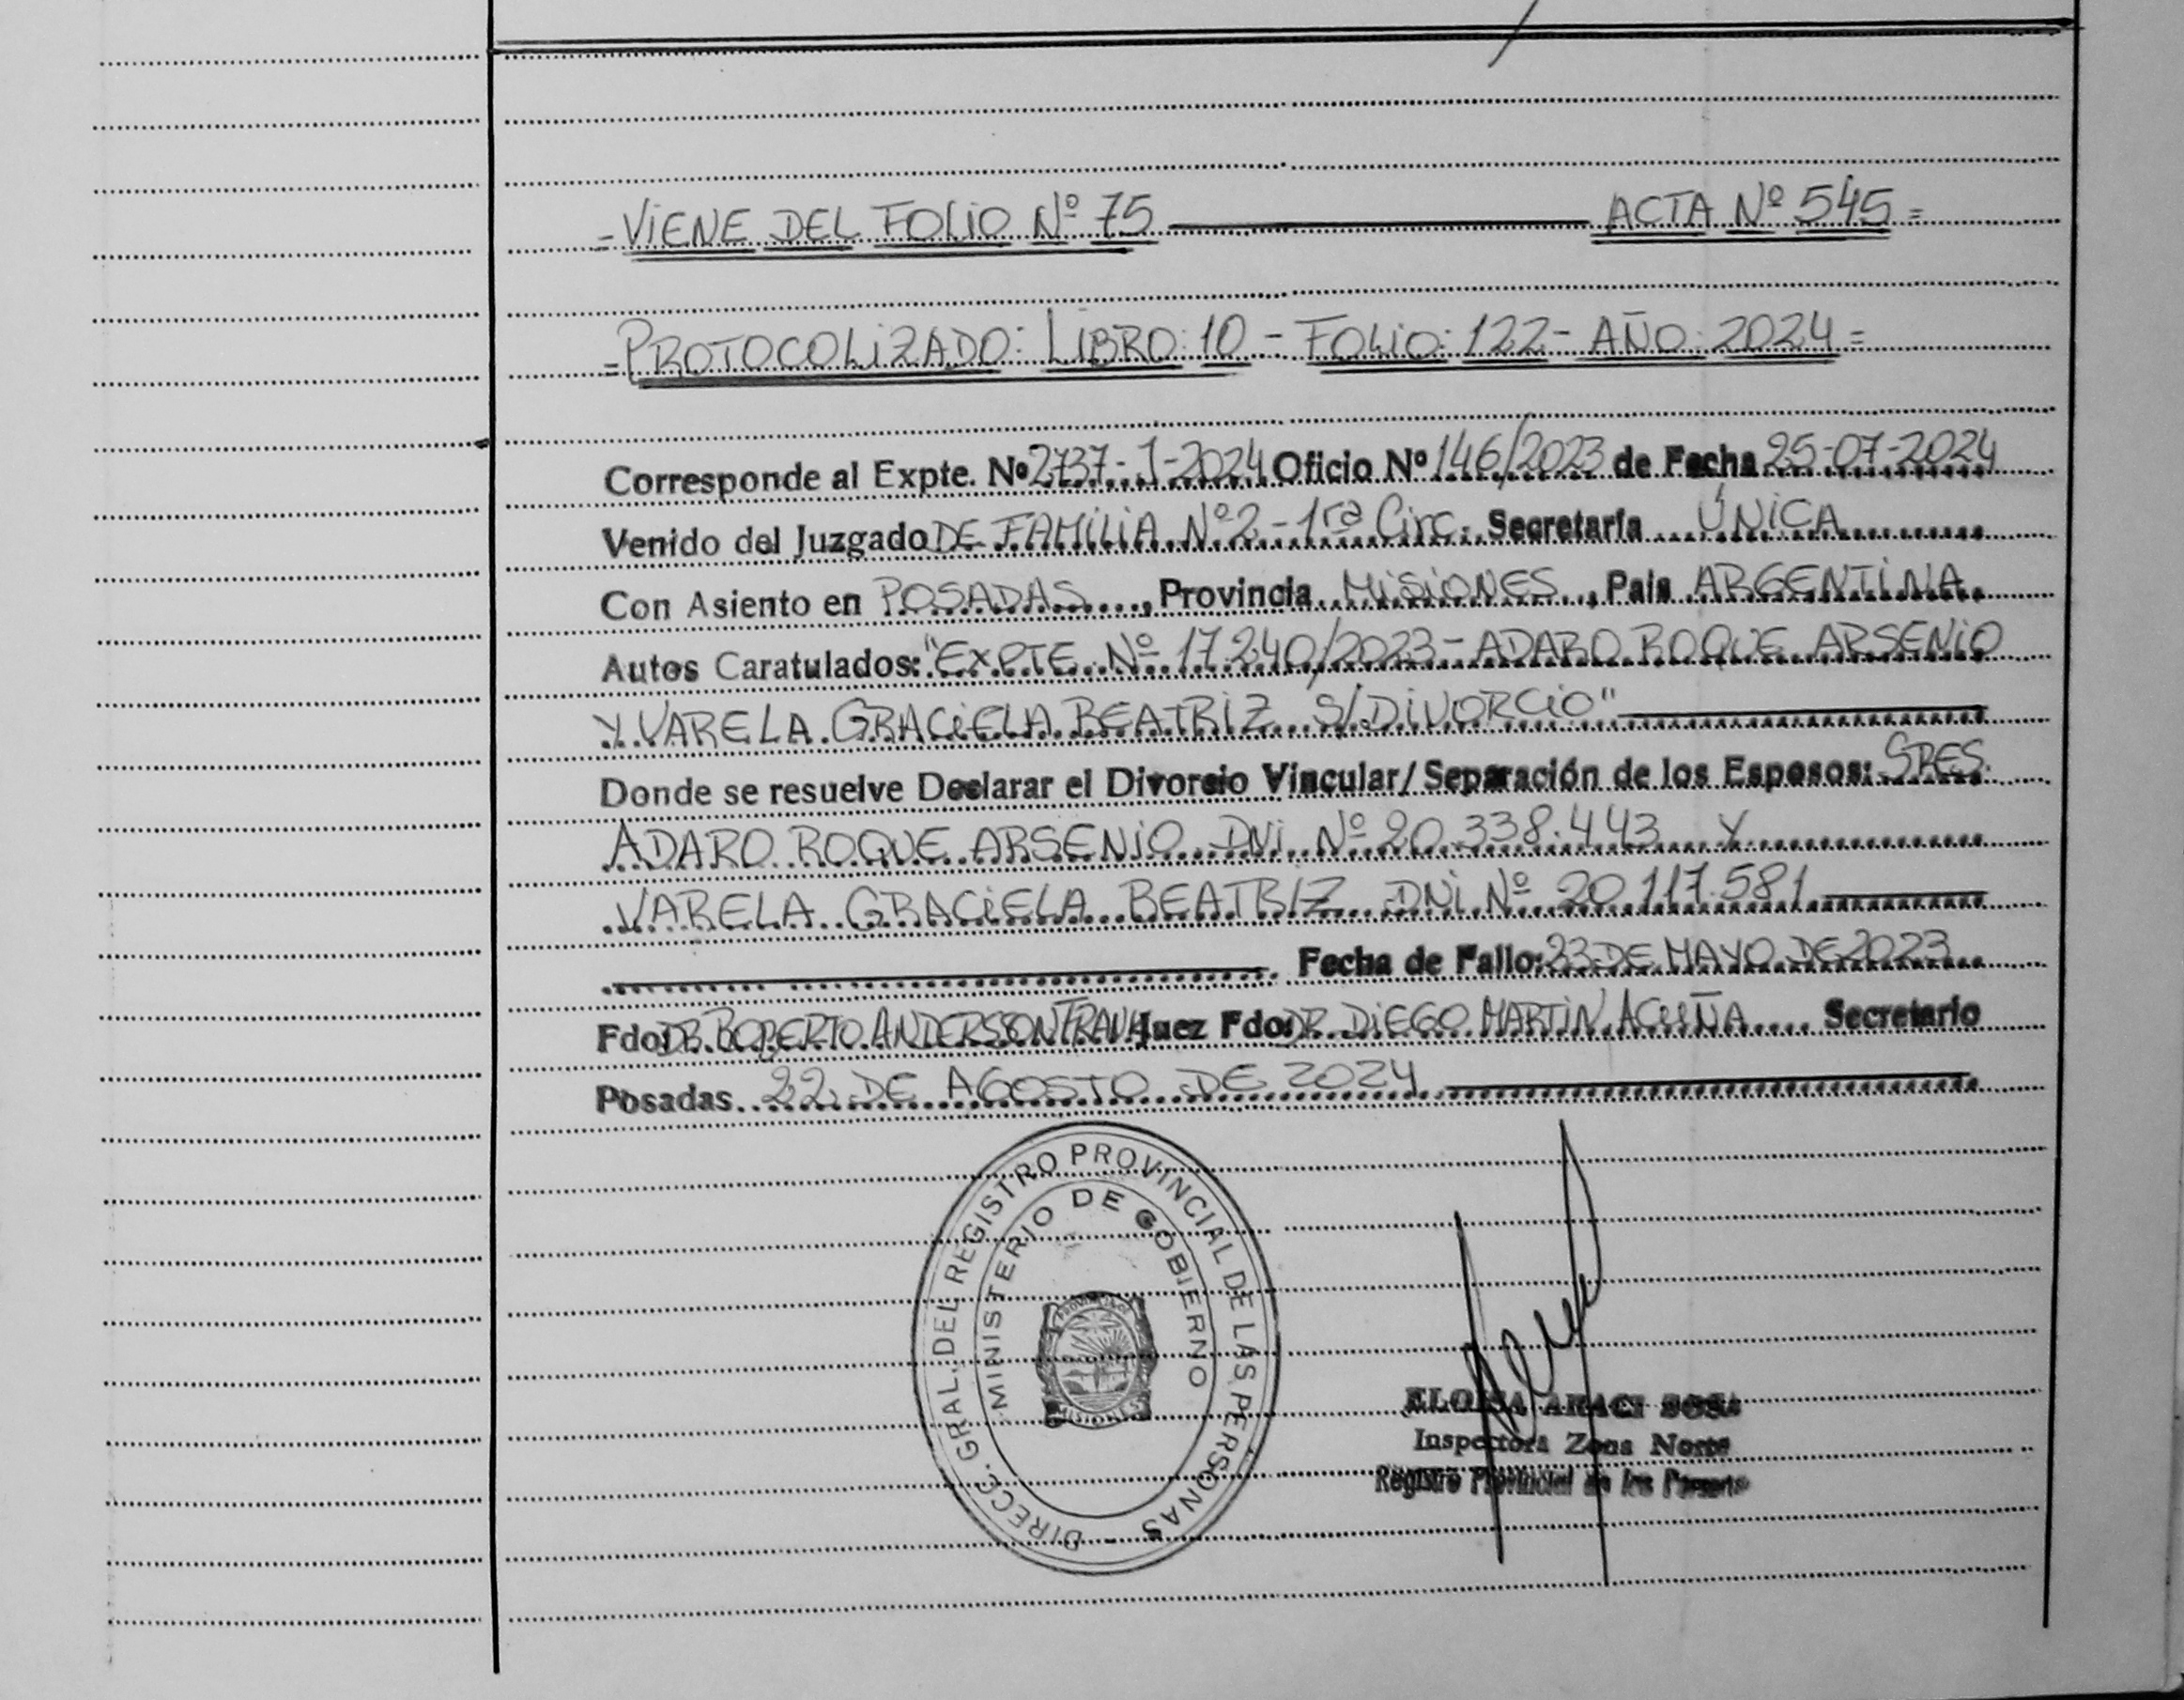 =VIENE DEL FOLIO Nº 75 ACTA Nº 545=
=PROTOCOLIZADO: LIBRO: 10 - FOLIO: 122 - AÑO: 2024=
Corresponde al Expte. Nº 2737-J-2024 Oficio Nº 146/2023 de Fecha 25-07-2024
Venido del Juzgado DE FAMILIA Nº 2 - 1ra Circ. Secretaría ÚNICA
Con Asiento en POSADAS, Provincia MISIONES, País ARGENTINA
Autos Caratulados: "EXPTE. Nº 17240/2023 - ADARO ROQUE ARSENIO
Y VARELA GRACIELA BEATRIZ S/DIVORCIO"
Donde se resuelve Declarar el Divorcio Vincular/Separación de los Esposos: SRES.
ADARO ROQUE ARSENIO DNI Nº 20.338.443 Y
VARELA GRACIELA BEATRIZ DNI Nº 20.117.581
Fecha de Fallo: 23 DE MAYO DE 2023
Fdo: DR. ROBERTO ANDERSSON FRANK Juez Fdo: DR. DIEGO MARTIN ACUÑA Secretario
Posadas 22 DE AGOSTO DE 2024
DIRECC. GRAL. DEL REGISTRO PROVINCIAL DE LAS PERSONAS
MINISTERIO DE GOBIERNO
PROVINCIA DE
MISIONES
ELOISA ARACI SOSA
Inspectora Zona Norte
Registro Provincial de las Personas